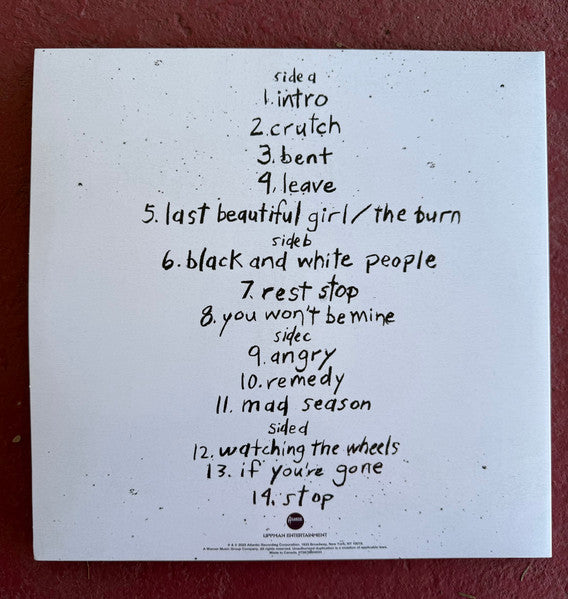 side a
1. intro
2. crutch
3. bent
4. leave
5. last beautiful girl/the burn
side b
6. black and white people
7. rest stop
8. you won't be mine
side c
9. angry
10. remedy
11. mad season
side d
12. watching the wheels
13. if you're gone
14. stop
LIPPMAN ENTERTAINMENT
A Warner Music Group Company. All rights reserved. Unauthorized duplication is a violation of applicable laws.